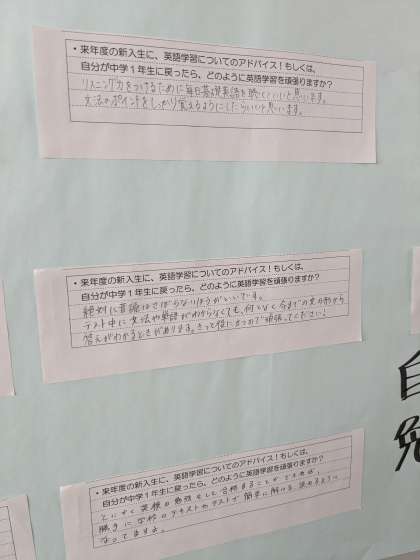 ・来年度の新入生に、英語学習についてのアドバイス！もしくは、
自分が中学1年生に戻ったら、どのように英語学習を頑張りますか？
リスニング力をつけるために毎日基礎英語を聴くといいと思います。
文法のポイントをしっかり覚えるようにしたらいいと思います。
・来年度の新入生に、英語学習についてのアドバイス！もしくは、
自分が中学1年生に戻ったら、どのように英語学習を頑張りますか？
絶対に音読はさぼらないほうがいいです。
テスト中に文法や単語がわからなくても、何となく今までの文の形から
答えがわかるときがあります。きっと役に立つので頑張ってください！
・来年度の新入生に、英語学習についてのアドバイス！もしくは、
自分が中学1年生に戻ったら、どのように英語学習を頑張りますか？
とにかく英検の勉強をして合格することができれば、
勝手に学校のテキストやテストで簡単に解ける
なってますよ。
自
免